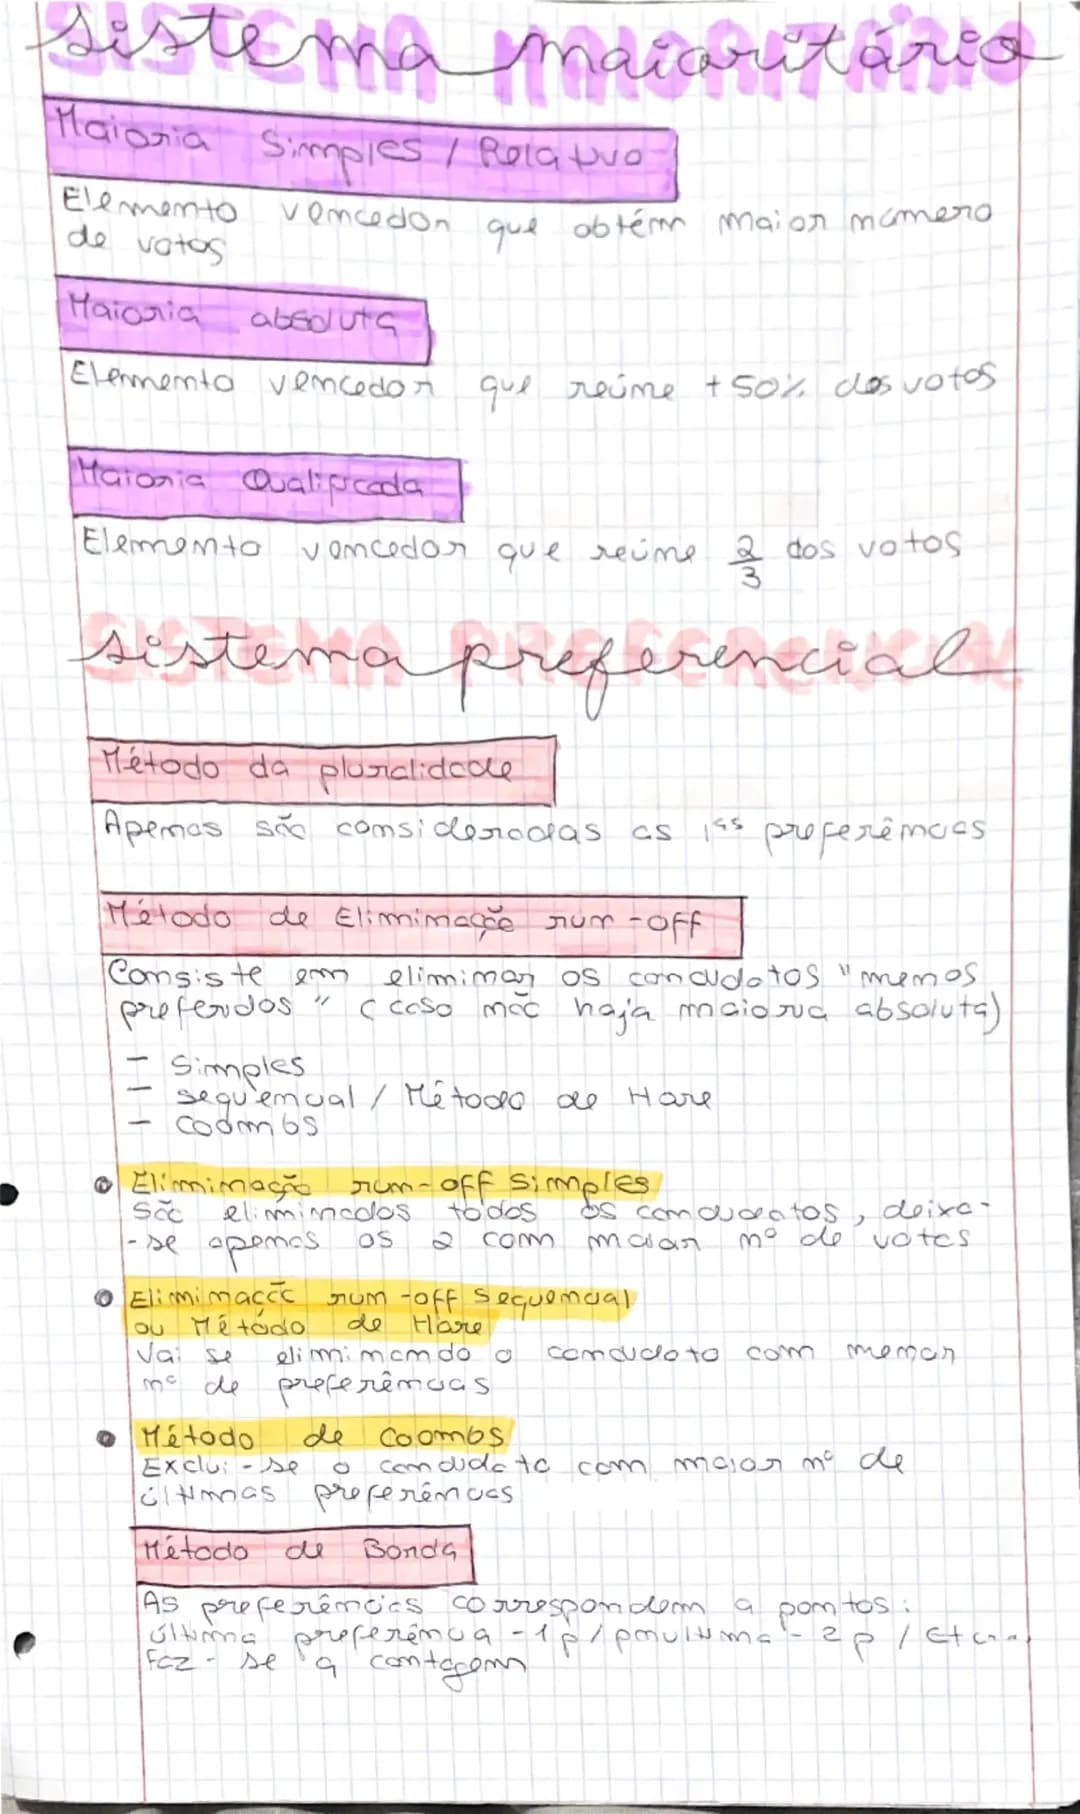 sistema maioritário
SISTEMA MAIORITÁRIO
Maioria Simples / Relativo
Elemento vencedor que obtém maior número
de votos
Maioria absoluta
Elemento vencedor que reúne +50% dos votos
Maioria Qualificada
Elemento vencedor que reúne 2/3 dos votos
sistema preferencial
SISTEMA PREFERENCIAL
Método da pluralidade
Apenas são consideradas as 1as preferências
Método de Eliminação run-off
Consiste em eliminar os candidatos "menos
preferidos" (caso não haja maioria absoluta)
- Simples
- sequencial / Método de Hare
- Coombs
Eliminação run-off simples
São eliminados todos os candidatos, deixa-
-se apenas os 2 com maior nº de votos
Eliminação run-off sequencial
ou Método de Hare
Vai se eliminando o candidato com menor
nº de preferências
Método de Coombs
Exclui-se o candidato com maior nº de
últimas preferências
Método de Borda
As preferências correspondem a pontos:
última preferência - 1p / pnultima - 2p / etc...
Faz-se a contagem